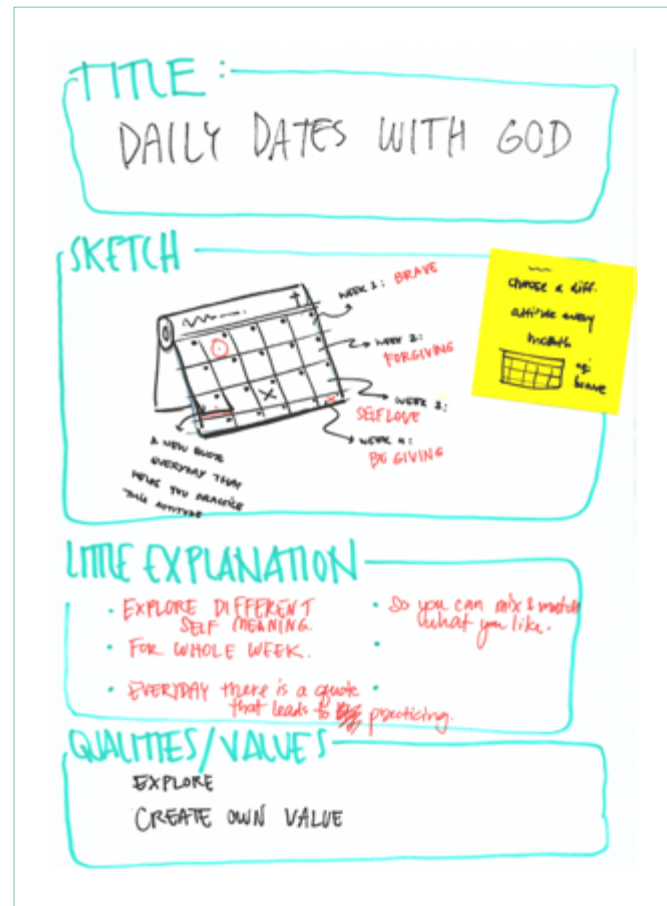 TITLE:
DAILY DATES WITH GOD
SKETCH
WEEK 1: BRAVE
WEEK 2:
FORGIVING
WEEK 3:
SELF LOVE
WEEK 4:
BE GIVING
A NEW QUOTE
EVERYDAY THAT
HELPS YOU PRACTICE
THIS ATTITUDE
choose a diff.
attitude every
month
brave
LITTLE EXPLANATION
• EXPLORE DIFFERENT
SELF MEANING.
• FOR WHOLE WEEK.
• EVERYDAY there is a quote
that leads to practicing.
• So you can mix & match
what you like.
•
•
QUALITIES/VALUES
EXPLORE
CREATE OWN VALUE